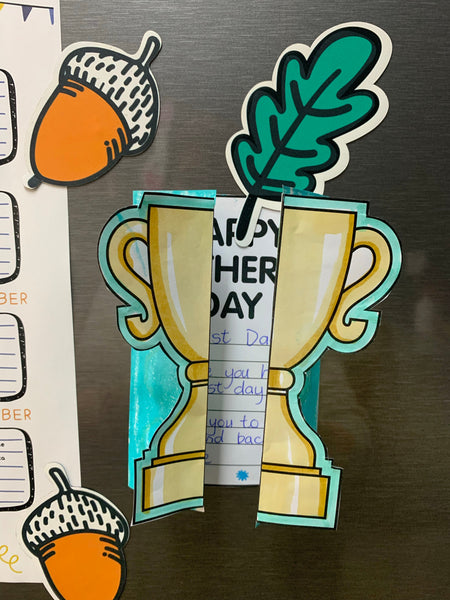 BER
BER
APPY
THER
DAY
st Da
e you h
st day
you to
od bac